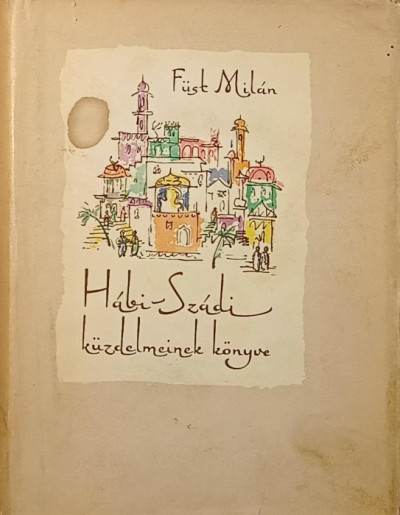 Füst Milán
Hábi-Szádi
küzdelmeinek könyve